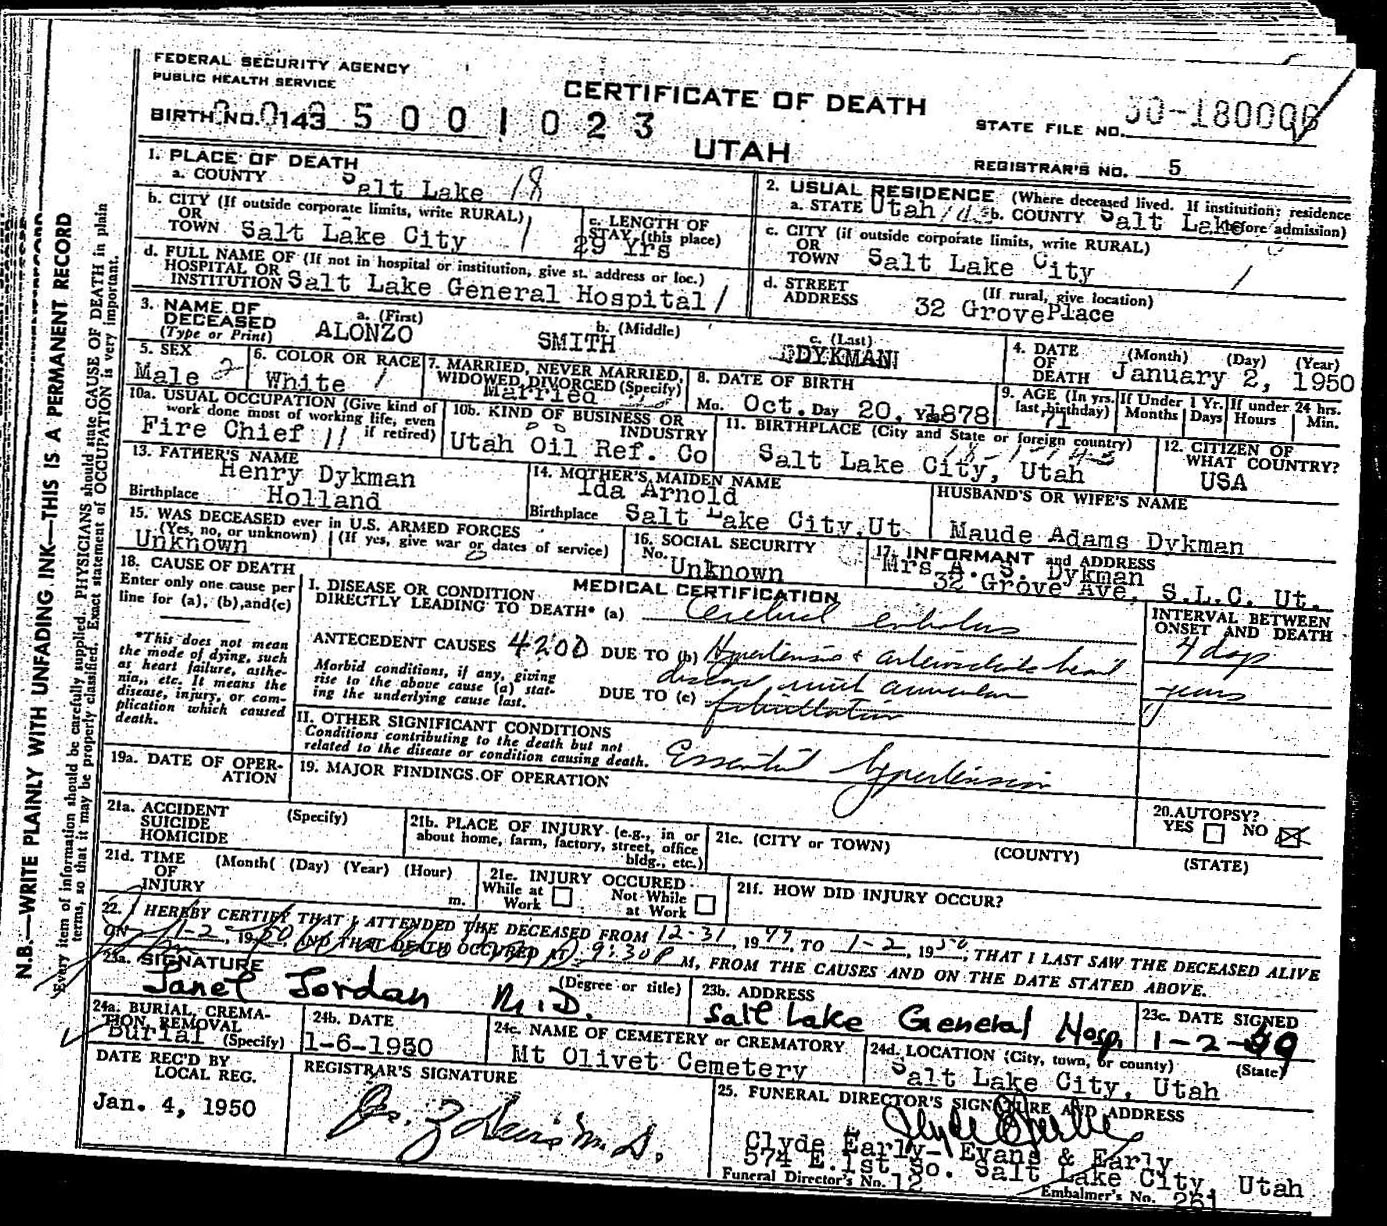 FEDERAL SECURITY AGENCY
PUBLIC HEALTH SERVICE
CERTIFICATE OF DEATH
UTAH
BIRTH NO. 0143 5 0 0 1 0 2 3
STATE FILE NO. 50-180006
REGISTRAR'S NO. 5
1. PLACE OF DEATH
a. COUNTY Salt Lake 18
b. CITY (If outside corporate limits, write RURAL)
OR
TOWN Salt Lake City 1
c. LENGTH OF
STAY (this place)
29 Yrs
d. FULL NAME OF (If not in hospital or institution, give st. address or loc.)
HOSPITAL OR
INSTITUTION Salt Lake General Hospital 1
2. USUAL RESIDENCE (Where deceased lived. If institution: residence
before admission)
a. STATE Utah b. COUNTY Salt Lake
c. CITY (if outside corporate limits, write RURAL)
OR
TOWN Salt Lake City 1
d. STREET
ADDRESS
(If rural, give location)
32 GrovePlace
3. NAME OF
DECEASED
(Type or Print)
a. (First) ALONZO
b. (Middle) SMITH
c. (Last) DYKMAN
4. DATE
OF
DEATH
(Month) (Day) (Year)
January 2, 1950
5. SEX
Male 2
6. COLOR OR RACE
White 1
7. MARRIED, NEVER MARRIED,
WIDOWED, DIVORCED (Specify)
Married
8. DATE OF BIRTH
Mo. Oct. Day 20, Yr. 1878
9. AGE (In yrs.
last birthday)
71
If Under 1 Yr.
Months Days
If under 24 hrs.
Hours Min.
10a. USUAL OCCUPATION (Give kind of
work done most of working life, even
if retired)
Fire Chief 11
10b. KIND OF BUSINESS OR
INDUSTRY
Utah Oil Ref. Co
11. BIRTHPLACE (City and State or foreign country)
Salt Lake City, Utah
12. CITIZEN OF
WHAT COUNTRY?
USA
13. FATHER'S NAME
Henry Dykman
Birthplace Holland
14. MOTHER'S MAIDEN NAME
Ida Arnold
Birthplace Salt Lake City, Ut.
HUSBAND'S OR WIFE'S NAME
Maude Adams Dykman
15. WAS DECEASED ever in U.S. ARMED FORCES
(Yes, no, or unknown) (If yes, give war or dates of service)
Unknown
16. SOCIAL SECURITY
No.
Unknown
17. INFORMANT and ADDRESS
Mrs A. S. Dykman
32 Grove Ave, S.L.C. Ut.
18. CAUSE OF DEATH
Enter only one cause per
line for (a), (b), and (c)
*This does not mean
the mode of dying, such
as heart failure, asthe-
nia, etc. It means the
disease, injury, or com-
plication which caused
death.
MEDICAL CERTIFICATION
I. DISEASE OR CONDITION
DIRECTLY LEADING TO DEATH* (a) Cerebral embolus
ANTECEDENT CAUSES 4200 DUE TO (b) Hypertensive & arteriosclerotic heart
disease with auricular
Morbid conditions, if any, giving
rise to the above cause (a) stat-
ing the underlying cause last.
DUE TO (c) fibrillation
INTERVAL BETWEEN
ONSET AND DEATH
4 days
years
II. OTHER SIGNIFICANT CONDITIONS
Conditions contributing to the death but not
related to the disease or condition causing death.
Essential hypertension
19a. DATE OF OPER-
ATION
19. MAJOR FINDINGS OF OPERATION
20. AUTOPSY?
YES NO
21a. ACCIDENT
SUICIDE
HOMICIDE
(Specify)
21b. PLACE OF INJURY (e.g., in or
about home, farm, factory, street, office
bldg., etc.)
21c. (CITY or TOWN) (COUNTY) (STATE)
21d. TIME
OF
INJURY
(Month( (Day) (Year) (Hour)
m.
21e. INJURY OCCURED
While at
Work
Not While
at Work
21f. HOW DID INJURY OCCUR?
22. I HEREBY CERTIFY THAT I ATTENDED THE DECEASED FROM 12-31, 1949, TO 1-2, 1950, THAT I LAST SAW THE DECEASED ALIVE
ON 1-2, 1950, AND THAT DEATH OCCURED AT 9:30 P M, FROM THE CAUSES AND ON THE DATE STATED ABOVE.
23a. SIGNATURE
Janet Jordan M.D.
(Degree or title)
23b. ADDRESS
Salt Lake General Hosp.
23c. DATE SIGNED
1-2-
24a. BURIAL, CREMA-
TION, REMOVAL
Burial (Specify)
24b. DATE
1-6-1950
24c. NAME OF CEMETERY or CREMATORY
Mt Olivet Cemetery
24d. LOCATION (City, town, or county) (State)
Salt Lake City, Utah
DATE REC'D BY
LOCAL REG.
Jan. 4, 1950
REGISTRAR'S SIGNATURE
25. FUNERAL DIRECTOR'S SIGNATURE AND ADDRESS
Clyde Early- Evans & Early
574 E. 1st So. Salt Lake City, Utah
Funeral Director's No. 12
Embalmer's No. 261
N.B.—WRITE PLAINLY WITH UNFADING INK—THIS IS A PERMANENT RECORD
Every item of information should be carefully supplied. PHYSICIANS should state CAUSE OF DEATH in plain
terms, so that it may be properly classified. Exact statement of OCCUPATION is very important.